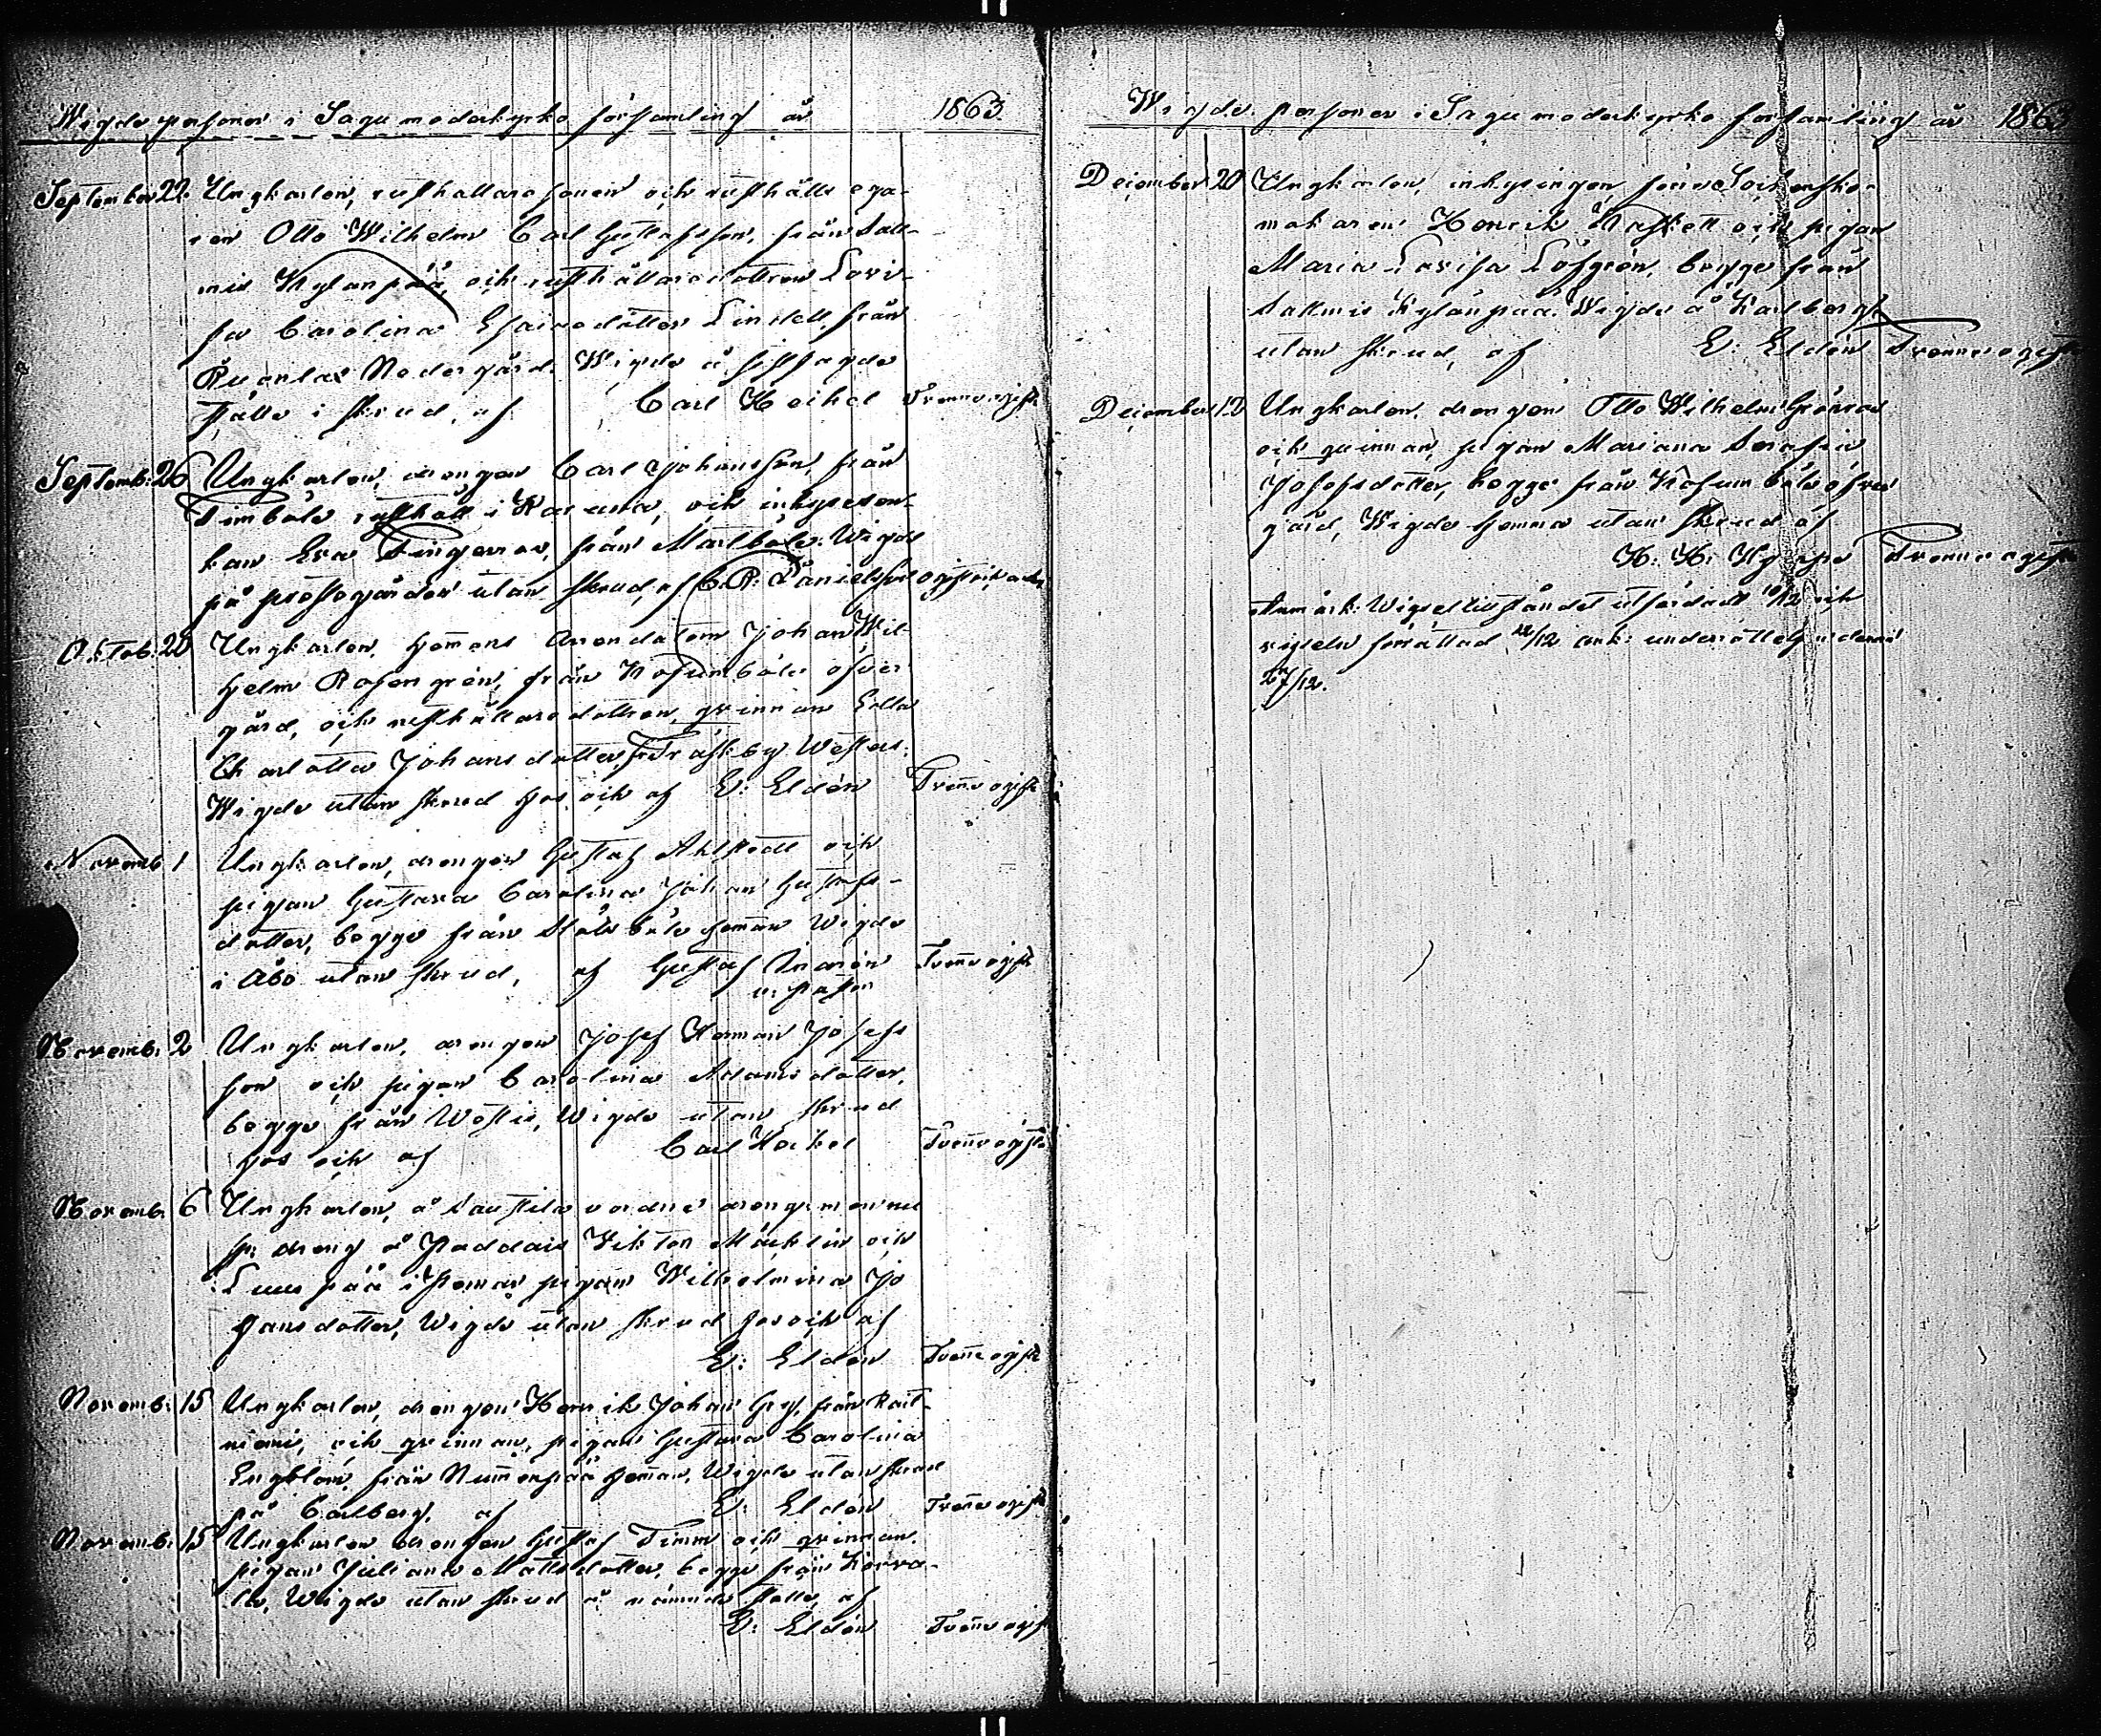 Wigde personer i Sagu moderkyrko församling år 1863.
September 22. Ungkarlen, rusthållaresonen och rusthålls ega-
ren Otto Wilhelm Carl Gustafsson, från Sall-
mis Kylänpää, och rusthållaredottren Lovi-
sa Carolina Esaiædotter Lindell, från
Ruonlax Nedergård. Wigde å sistsagde
ställe i skrud, af Carl Heikel Tvenne ogift
Septemb: 26 Ungkarlen, drengen Carl Johansson, från
Timböle rusthåll i Karuna, och inhyseson-
kan Eva Tingerroos, från Mattböle. Wigde
på prostegården utan skrud, af C. R. Danielsson ogift och enka
Oktob: 22 Ungkarlen, hem̅ans Arendatorn Johan Wil-
helm Rosengrén, från Kosumböle öfver
gård, och rusthållaredottren, qvinnan Edla
Charlotta Johansdotter, från Träskby Westers.
Wigde utan skrud hos och af E: Eldén Tven̅e ogift
Novemb. 1 Ungkarlen, drengen Gustaf Ahlstedt och
pigan Gustava Carolina Johan Gustafs-
dotter, begge från Stålsböle heman Wigde
i Åbo utan skrud, af Gustaf
v: pastor Tven̅e ogift
Novemb: 2 Ungkarlen, drengen Josef Herman Josefs
son och pigan Carolina Adamsdotter,
begge från Westis, Wigde utan skrud
hos och af Carl Heikel Tven̅e ogifta
Novemb. 6 Ungkarlen, å Sauttila vardne drengen nu
dreng å Paddais Viktor Mäcklin och
Luuspää i Pemar pigan Wilhelmina Jo
hansdotter, Wigde utan skrud hos och af
E: Eldén Tven̅e ogift
Novemb: 15 Ungkarlen, drengen Henrik Johan Gry, från Rait-
niemi, och qvinnan, pigan Gustava Carolina
Engblom, från Num̅enpää hem̅an, Wigde utan skrud
på Carlberg, af E: Eldén Tven̅e ogift
Novemb: 15 Ungkarlen drengen Gustaf Timm och qvinnan,
pigan Juliana Mattsdotter, begge från Korva-
la, Wigde utan skrud å nämnde ställe, af
E: Eldén Tven̅e ogift
Wigde personer i Sagu moderkyrko församling år 1863
December 20 Ungkarlen, inhysingen, förre Sockensko-
makaren Henrik Hassell och pigan
Maria Lovisa Löfgrén, begge från
Sallmis Kylänpää. Wigde å Karlberg
utan skrud, af E: Eldén Tvenne ogifta
December 12 Ungkarlen, drengen Otto Wilhelm Grönroos
och qvinnan, pigan Mariana Serafia
Josefsdotter, begge från Kosumböle öfver
gård, Wigde hemma utan skrud af
K. H. Tvenne ogifta
Anmärk: Wigseltillståndet utfärdadt 10/12 och
vigseln förrättad 12/12 enl: underrättelse derom
27/12.